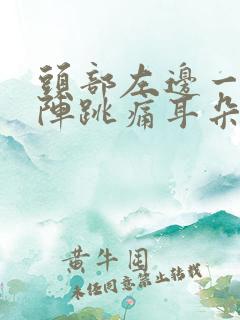 頭部左邊一
陣跳痛耳朵
黃牛国
未任同意禁止转载